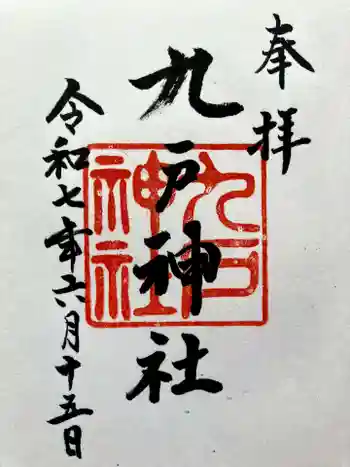 奉拝
九戸神社
九戸
神社
令和七年六月十五日